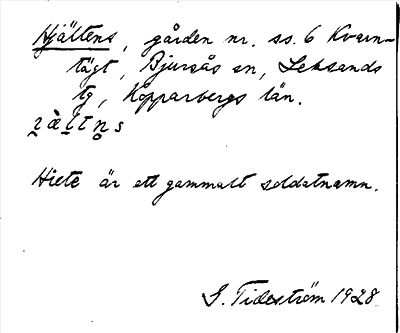 Hjältens, gården nr. ss. 6 Kvarn-
tägt, Bjursås sn, Leksands
tg, Kopparbergs län.
Hiete är ett gammalt soldatnamn.
G. Tideström 1928